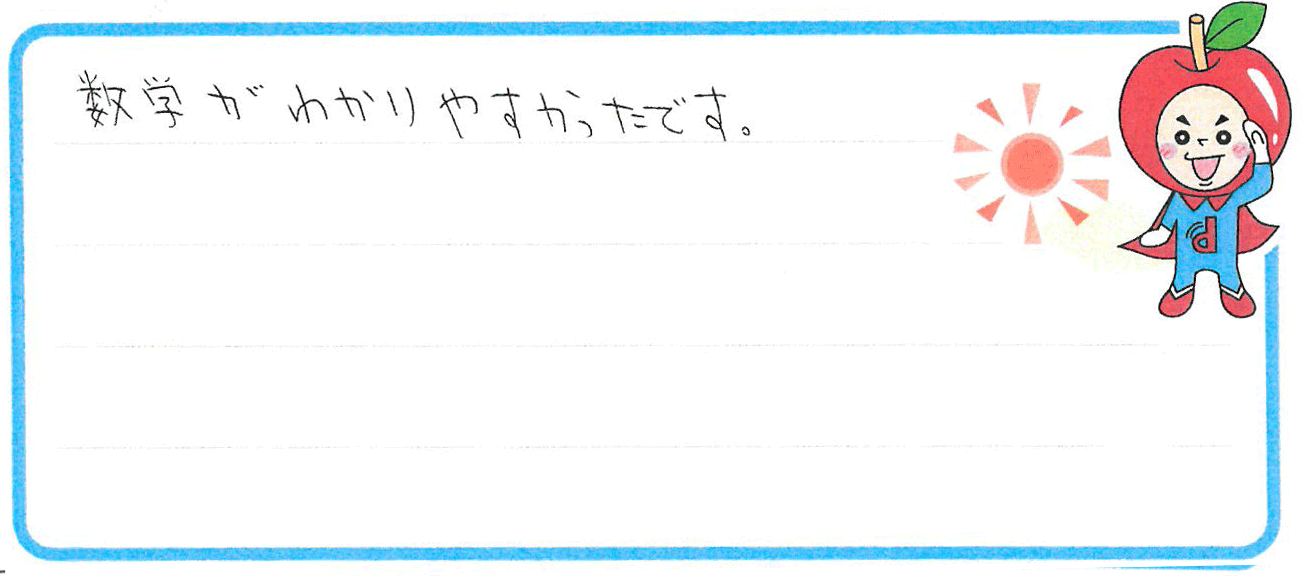 数学がわかりやすかったです。
d